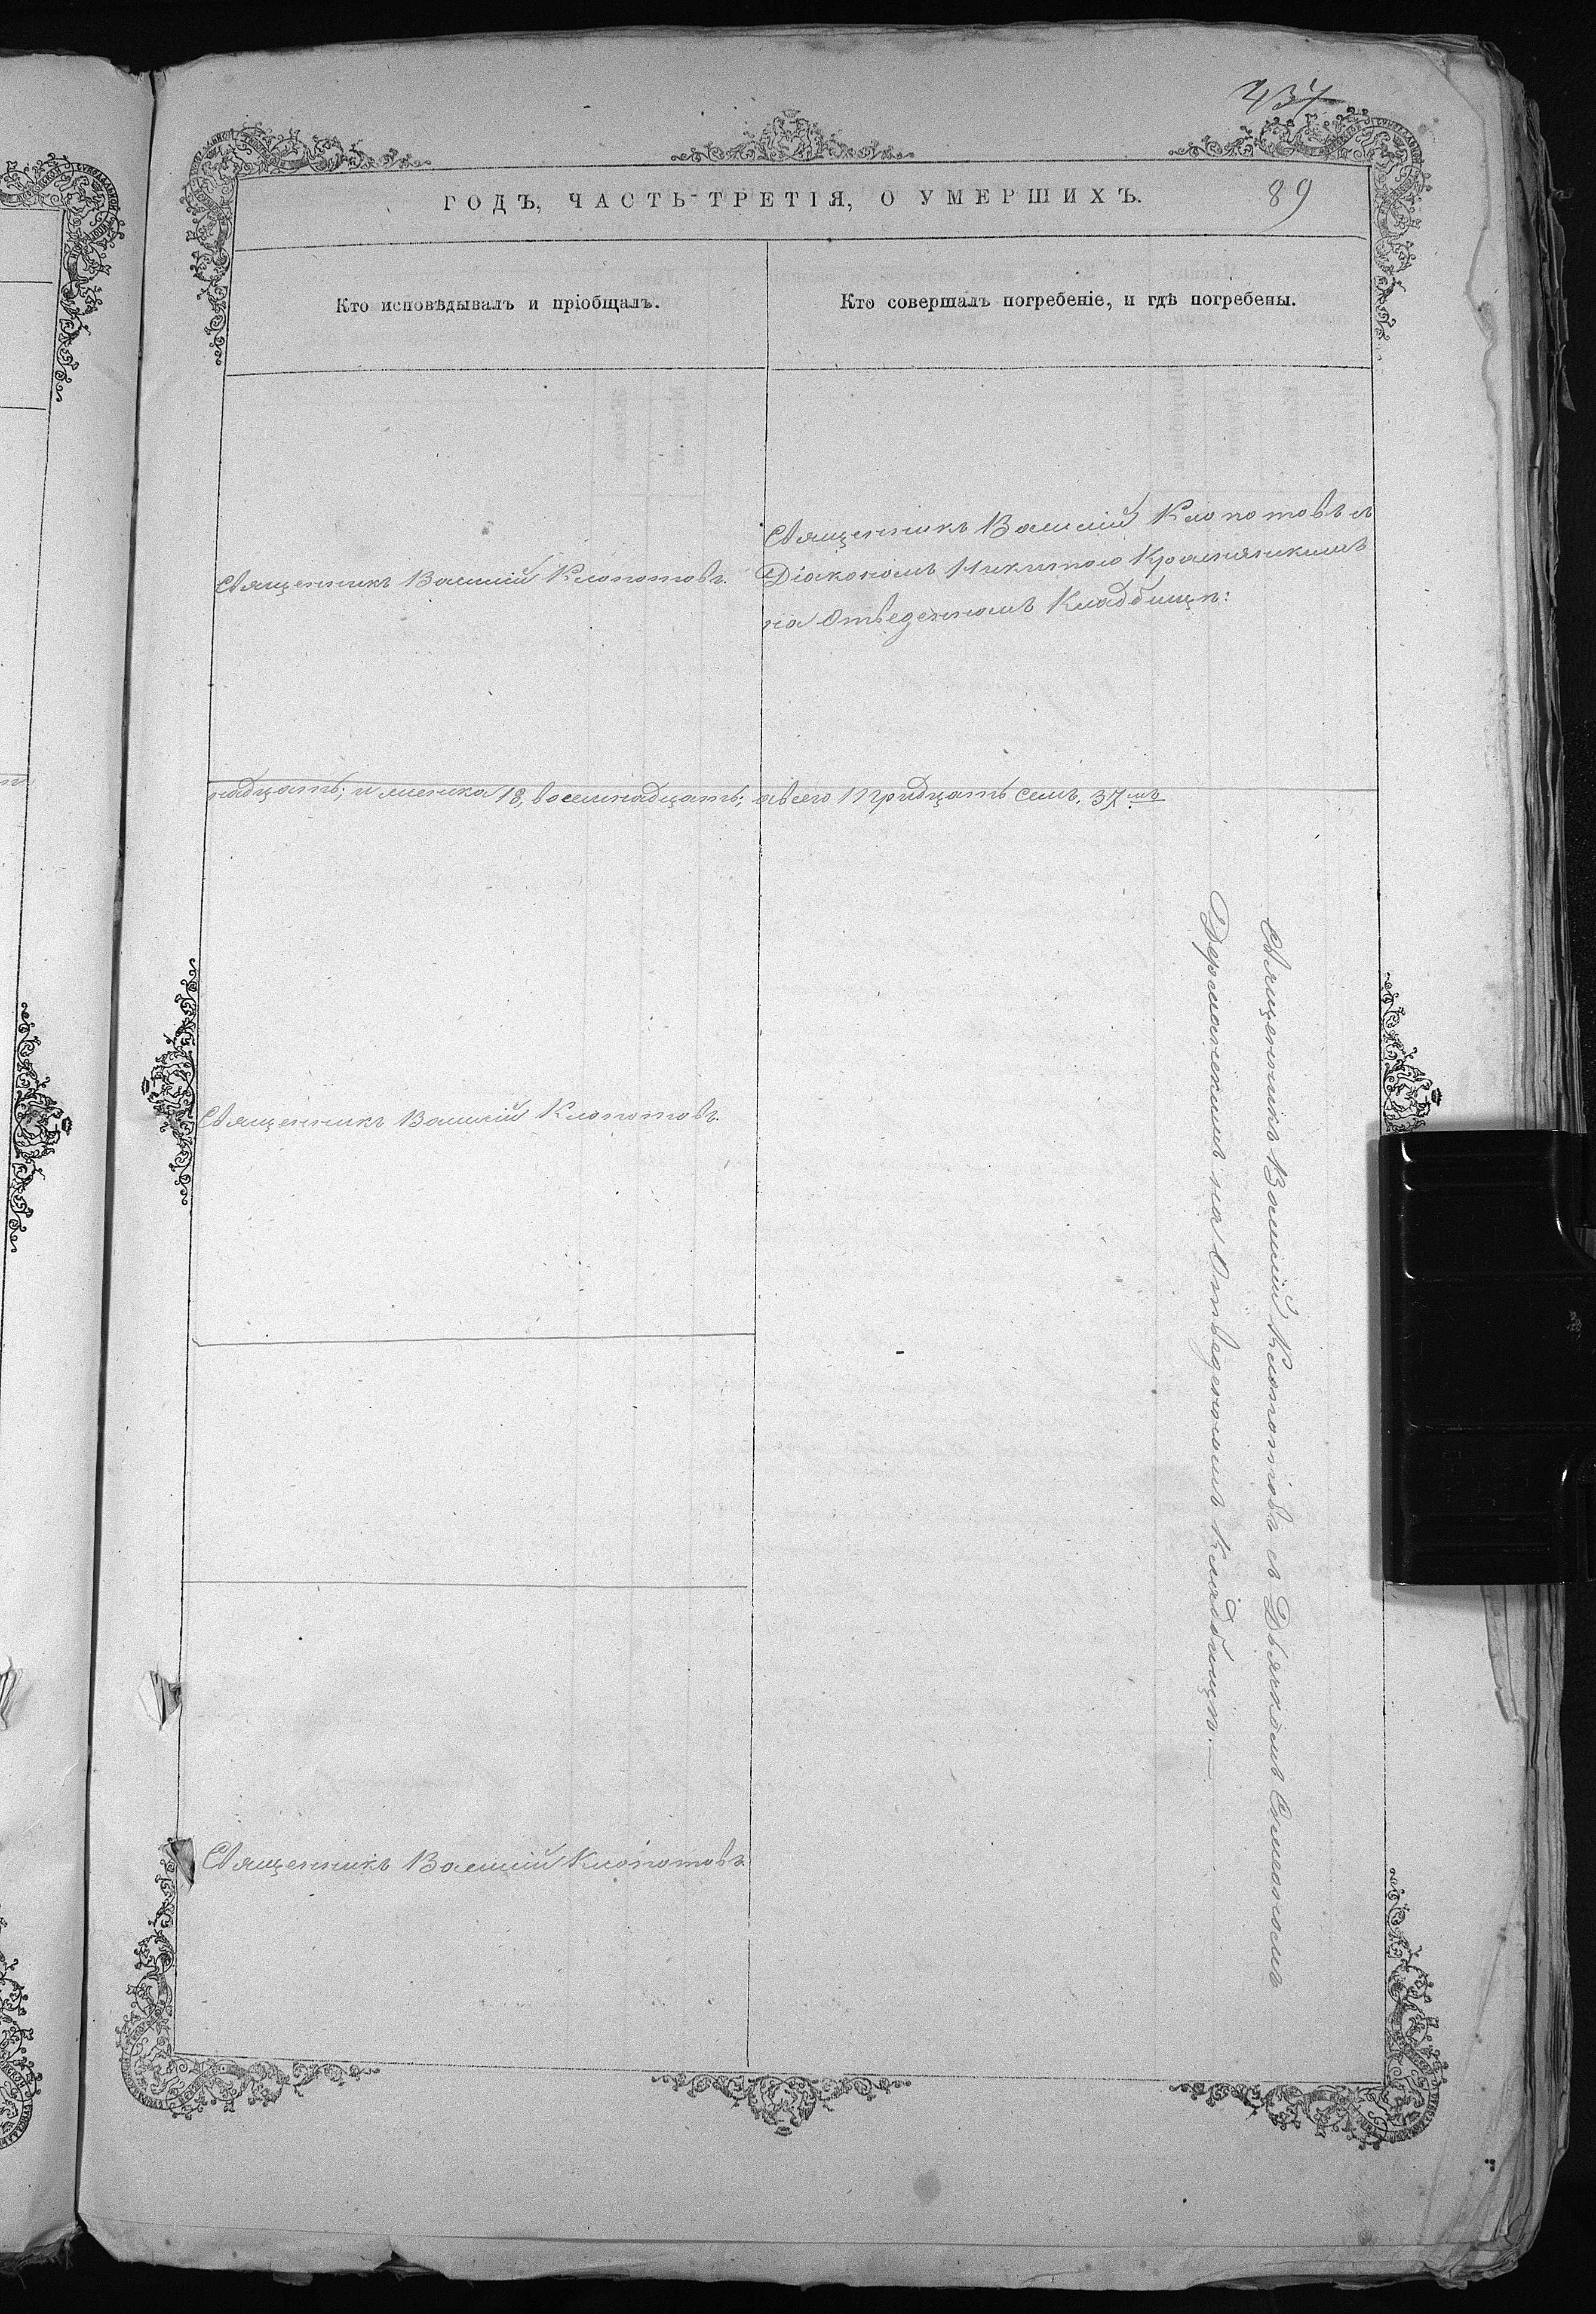 437
ГОДЪ, ЧАСТЬ ТРЕТІЯ, О УМЕРШИХЪ.
89
Кто исповѣдывалъ и пріобщалъ.
Кто совершалъ погребеніе, и гдѣ погребены.
Священникъ Василій Клопотовъ.
Священникъ Василій Клопотовъ съ
Діакономъ Никитою
на отведенномъ Кладбищѣ:
надцать; и женска 18, восемнадцать; а всего тридцать семь, 37мъ
Священникъ Василій Клопотовъ
Священникъ Василій Клопотовъ съ Дьячкомъ Симономъ
на Отведенномъ Кладбищѣ.—
Священникъ Василій Клопотовъ